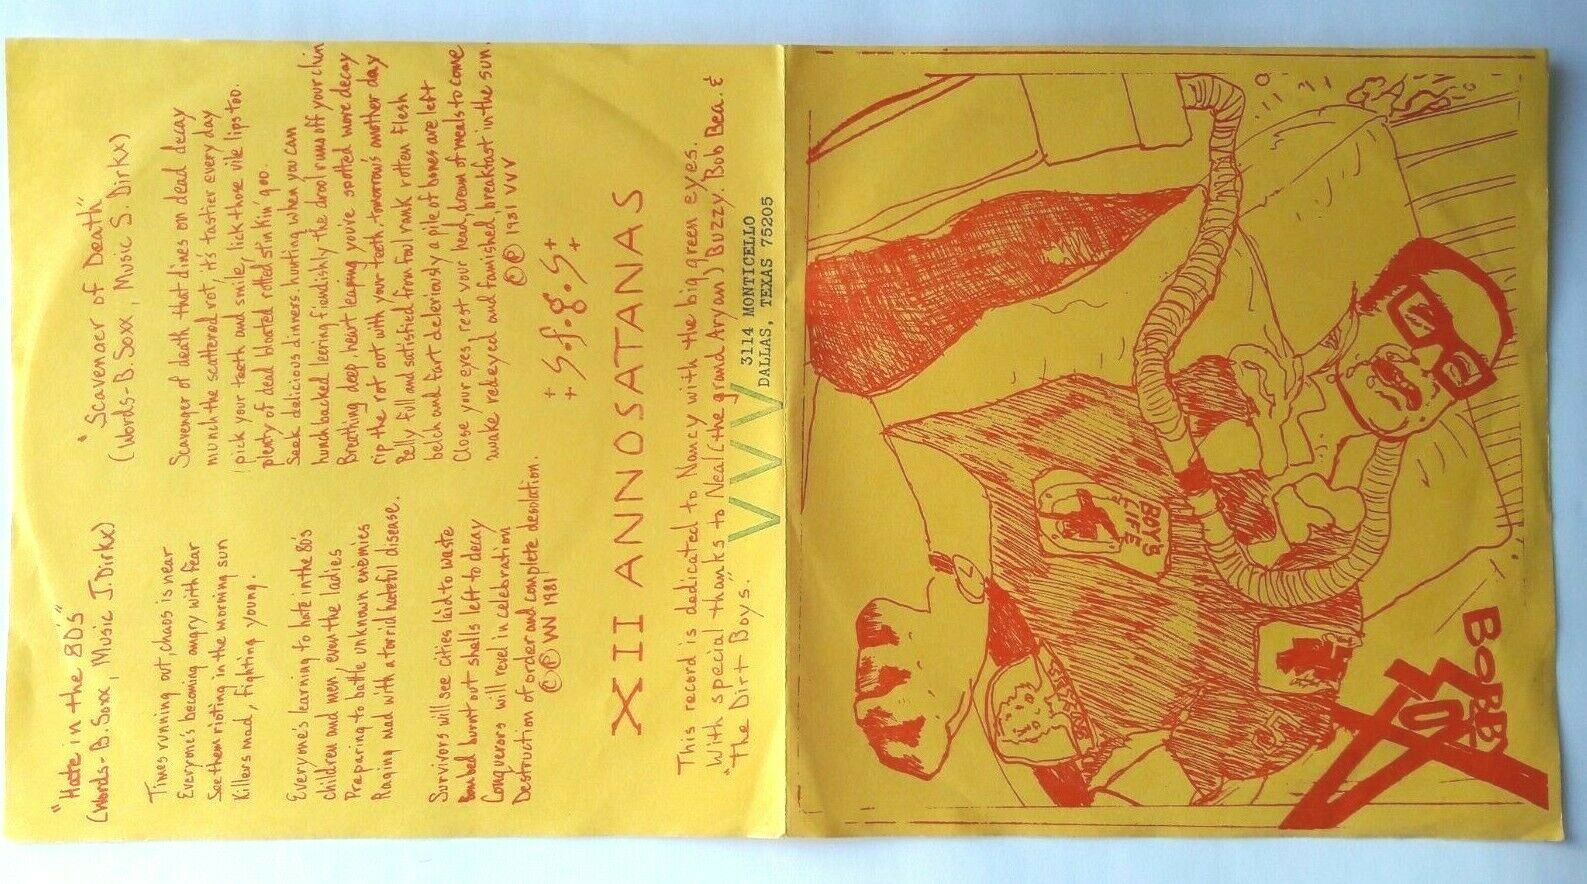 "Hate in the 80's"
(Words-B. Soxx, Music J. Dirkx)
Times running out, chaos is near
Everyone's becoming angry with fear
See them rioting in the morning sun
Killers mad, fighting young.
Everyone's learning to hate in the 80's
Children and men, even the ladies
Preparing to battle unknown enemies
Raging mad with a torrid hateful disease.
Survivors will see cities laid to waste
Bombed burnt out shells left to decay
Conquerors will revel in celebration
Destruction of order and complete desolation.
© ℗ VVV 1981
"Scavenger of Death"
(Words-B. Soxx, Music S. Dirkx)
Scavenger of death that dines on dead decay
munch the scattered rot, it's tastier every day
pick your teeth and smile, lick those vile lips too.
plenty of dead bloated rotted stinkin' goo.
Seek delicious dinners hunting when you can
hunchbacked leering fiendishly the drool runs off your chin
Breathing deep, heart leaping you've spotted more decay
rip the rot out with your teeth, tomorrow's another day
Belly full and satisfied from foul rank rotten flesh
belch and fart deleriously a pile of bones are left
Close your eyes, rest your head, dream of meals to come
awake redeyed and famished, breakfast in the sun.
© ℗ 1981 VVV
+ S.f.g.S +
XII ANNOSATANAS
This record is dedicated to Nancy with the big green eyes.
With special thanks to Neal (the grand Aryan) Buzzy, Bob Bea. &
"The Dirt Boys."
VVVV
3114 MONTICELLO
DALLAS, TEXAS 75205
BOY'S
LIFE
BOBBY
SOX